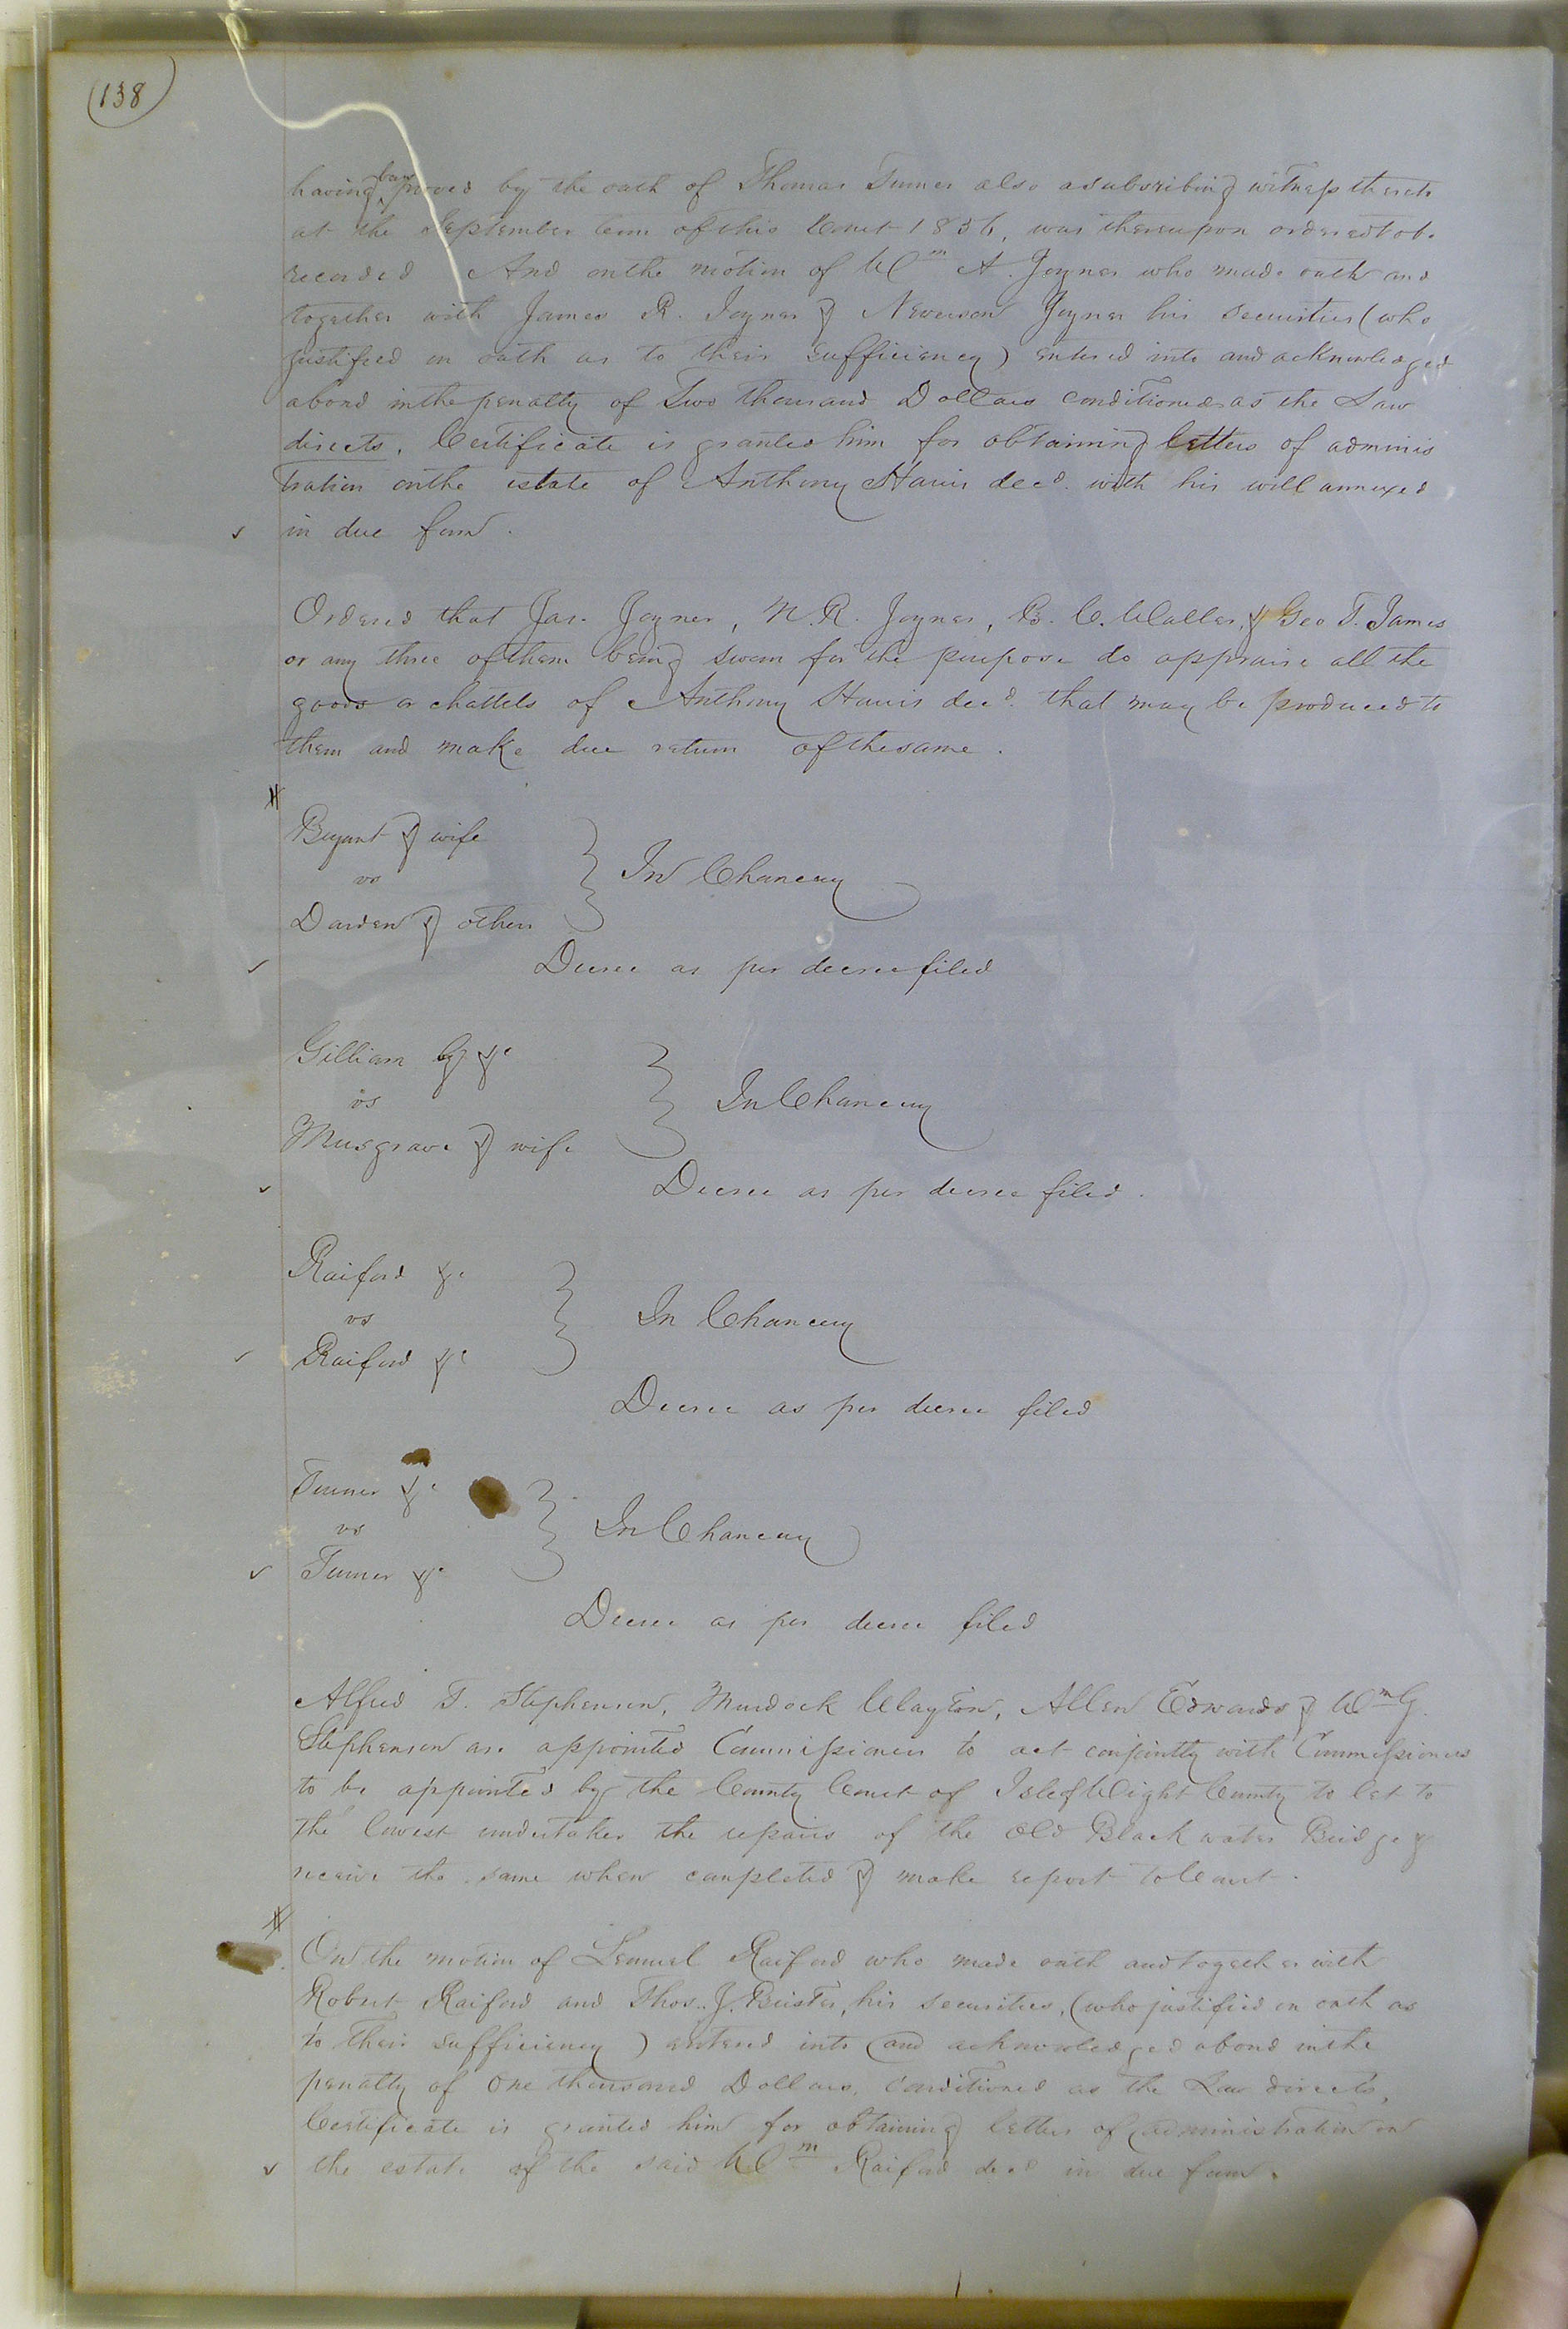 (138)
having been proved by the oath of Thomas Turner also a subscribing witness thereto
at the September term of this Court 1836, was thereupon ordered to be
recorded And on the motion of Wm A. Joyner who made oath and
together with James R. Joyner & Newsom Joyner his securities (who
justified on oath as to their sufficiency) entered into and acknowledged
a bond in the penalty of Two thousand Dollars conditioned as the Law
directs. Certificate is granted him for obtaining letters of adminis
tration on the estate of Anthony Harris decd. with his will annexed
in due form.
Ordered that Jas. Joyner, N. R. Joyner, B. C. Waller, & Geo T. James
or any three of them being sworn for the purpose do appraise all the
goods or chattels of Anthony Harris decd. that may be produced to
them and make due return of the same.
Bryant & wife
vs
Darden & others
In Chancery
Decree as per decree filed
Gilliam &c
vs
Musgrave & wife
In Chancery
Decree as per decree filed.
Raiford &c
vs
Raiford &c
In Chancery
Decree as per decree filed
Turner &c
vs
Turner &c
In Chancery
Decree as per decree filed
Alfred T. Stephenson, Murdock Clayton, Allen Edwards & Wm G.
Stephenson are appointed Commissioners to act conjointly with Commissioners
to be appointed by the County Court of Isle of Wight County to let to
the lowest undertaker the repairs of the Old Black water Bridge &
receive the same when completed & make report to Court.
On the motion of Lemuel Raiford who made oath and together with
Robert Raiford and Thos. J. Brister, his securities, (who justified on oath as
to their sufficiency) entered into and acknowledged a bond in the
penalty of One thousand Dollars, Conditioned as the Law directs,
Certificate is granted him for obtaining letters of administration on
the estate of the said Wm Raiford decd in due form.